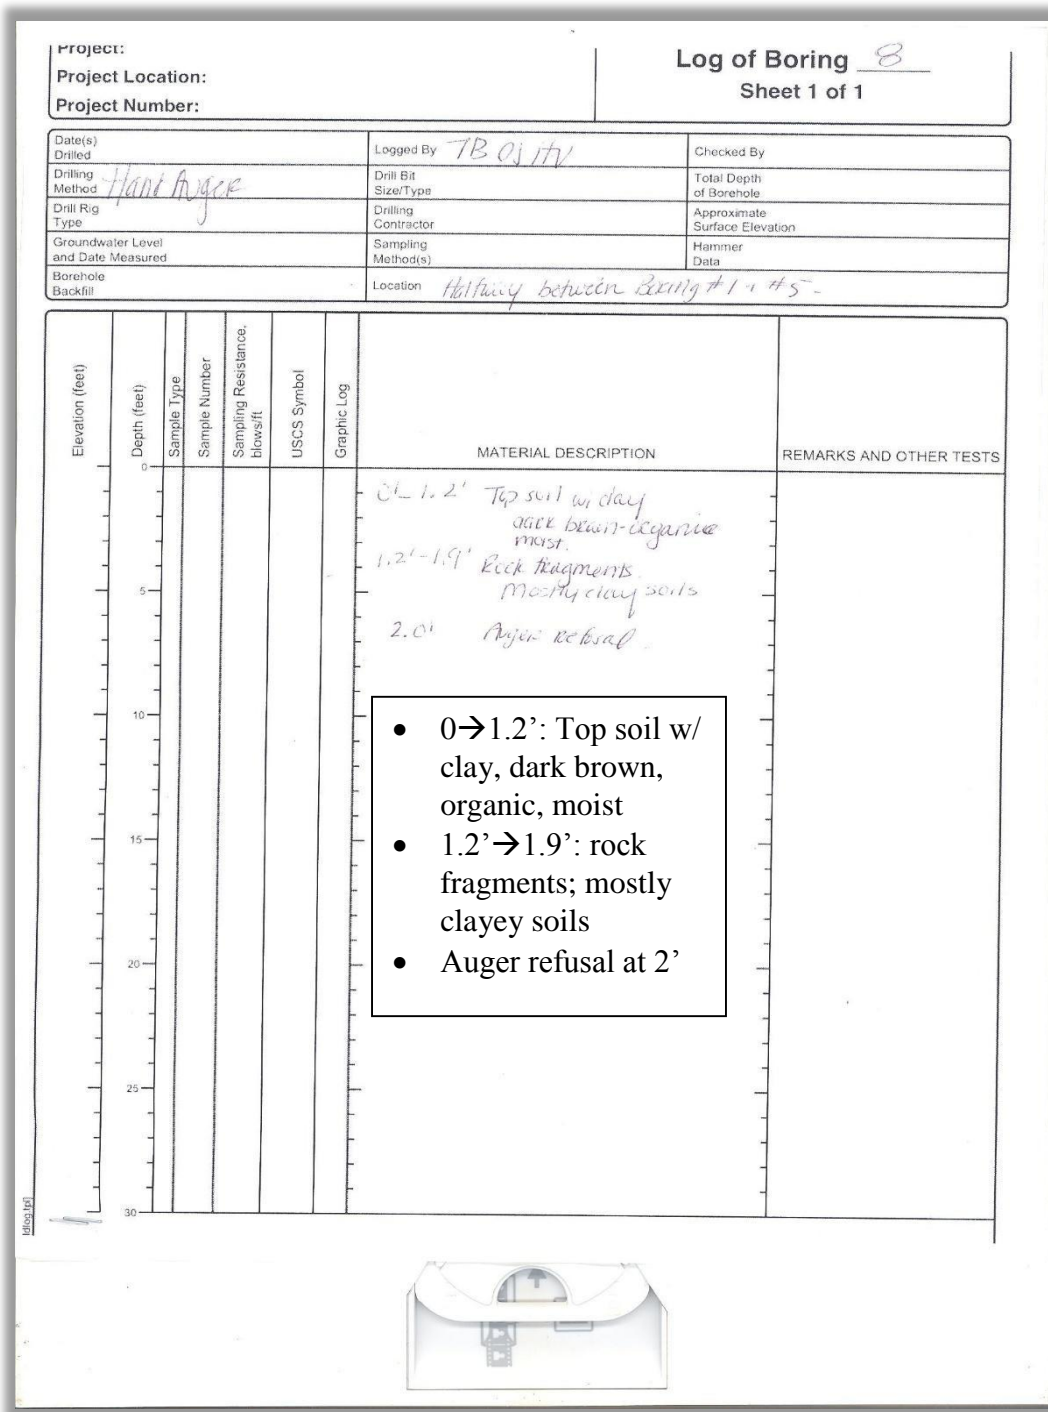 Project:
Project Location:
Project Number:
Log of Boring 8
Sheet 1 of 1
Date(s)
Drilled
Logged By TB
Checked By
Drilling
Method Hand Auger
Drill Bit
Size/Type
Total Depth
of Borehole
Drill Rig
Type
Drilling
Contractor
Approximate
Surface Elevation
Groundwater Level
and Date Measured
Sampling
Method(s)
Hammer
Data
Borehole
Backfill
Location Halfway between Boring #1 #5
Elevation (feet)
Depth (feet)
Sample Type
Sample Number
Sampling Resistance,
blows/ft
USCS Symbol
Graphic Log
MATERIAL DESCRIPTION
REMARKS AND OTHER TESTS
0
5
10
15
20
25
30
1.2' Top soil w/ clay
dark brown-organic
moist.
1.2'-1.9' Rock fragments.
Mostly clay soils
2.0' Auger Refusal
• 0→1.2’: Top soil w/
clay, dark brown,
organic, moist
• 1.2’→1.9’: rock
fragments; mostly
clayey soils
• Auger refusal at 2’